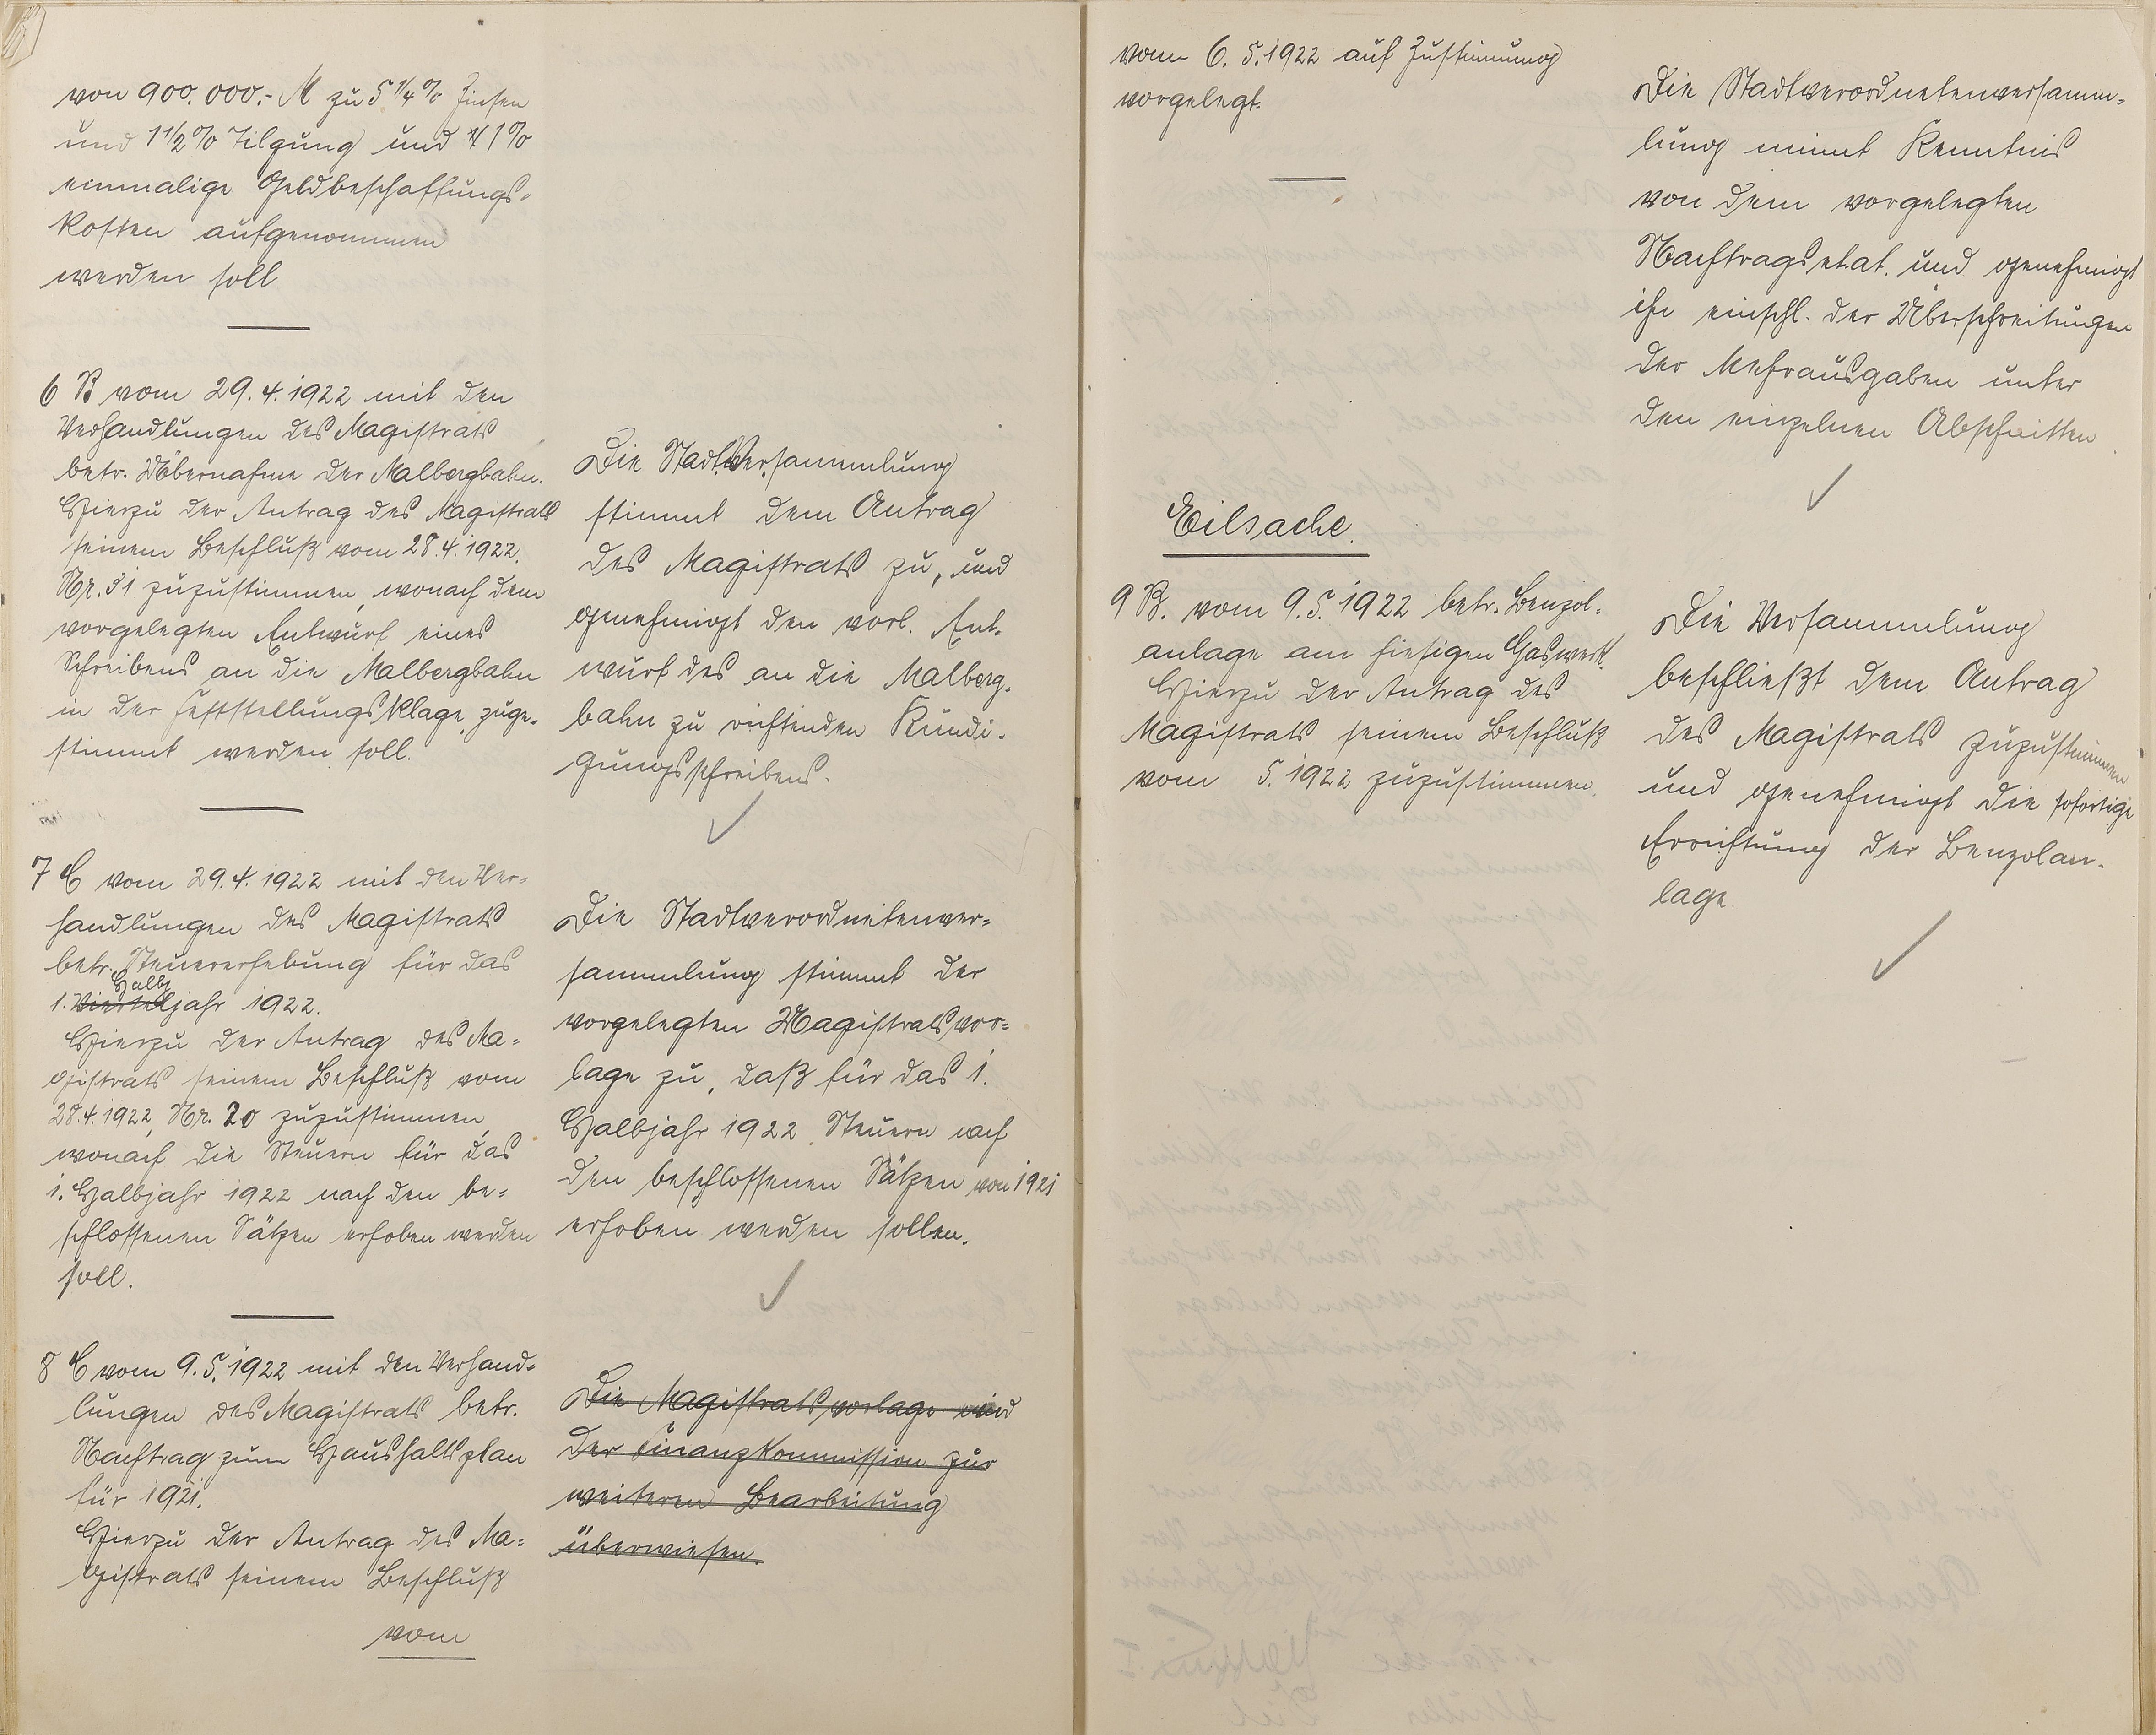 von 900.000.- M zu 5 1/4 % Zinsen
und 1 1/2 % Tilgung und 1 %
einmalige Geldbeschaffungs-
kosten aufgenommen
werden soll
6 B vom 29.4.1922 mit den
Verhandlungen des Magistrats
betr. Übernahme der Malbergbahn.
Hierzu der Antrag des Magistrats
seinem Beschluß vom 28.4.1922.
Nr. 31 zuzustimmen, wonach dem
vorgelegten Entwurf eines
Schreibens an die Malbergbahn
in der Feststellungsklage zuge-
stimmt werden soll.
Die Stadtversammlung
stimmt dem Antrag
des Magistrats zu, und
genehmigt den vorl. Ent-
wurf des an die Malberg-
bahn zu richtenden Kündi-
gungsschreibens.
7 C vom 29.4.1922 mit den Ver-
handlungen des Magistrats
betr. Steuererhebung für das
Halb
1. Vierteljahr 1922.
Hierzu der Antrag des Ma-
gistrats seinem Beschluß vom
28.4.1922, Nr. 20 zuzustimmen,
wonach die Steuern für das
1. Halbjahr 1922 nach den be-
schlossenen Sätzen erhoben werden
soll.
Die Stadtverordnetenver-
sammlung stimmt der
vorgelegten Magistratsvor-
lage zu, daß für das 1.
Halbjahr 1922 Steuern nach
den beschlossenen Sätzen von 1921
erhoben werden sollen.
8 C vom 9.5.1922 mit den Verhand-
lungen des Magistrats betr.
Nachtrag zum Haushaltsplan
für 1921.
Hierzu der Antrag des Ma-
gistrats seinem Beschluß
vom
Die Magistratsvorlage wird
der Finanzkommission zur
weiteren Bearbeitung
überwiesen.
vom 6.5.1922 auf Zustimmung
vorgelegt.
Die Stadtverordnetenversamm-
lung nimmt Kenntnis
von dem vorgelegten
Nachtragsetat und genehmigt
ihn einschl. der Überschreitungen
der Mehrausgaben unter
den einzelnen Abschnitten
Eilsache.
9 B. vom 9.5.1922 betr. Benzol-
anlage am hiesigen Gaswerk.
Hierzu der Antrag des
Magistrats seinem Beschluß
vom 5.1922 zuzustimmen.
Die Versammlung
beschließt dem Antrag
des Magistrats zuzustimmen
und genehmigt die sofortige
Errichtung der Benzolan-
lage.